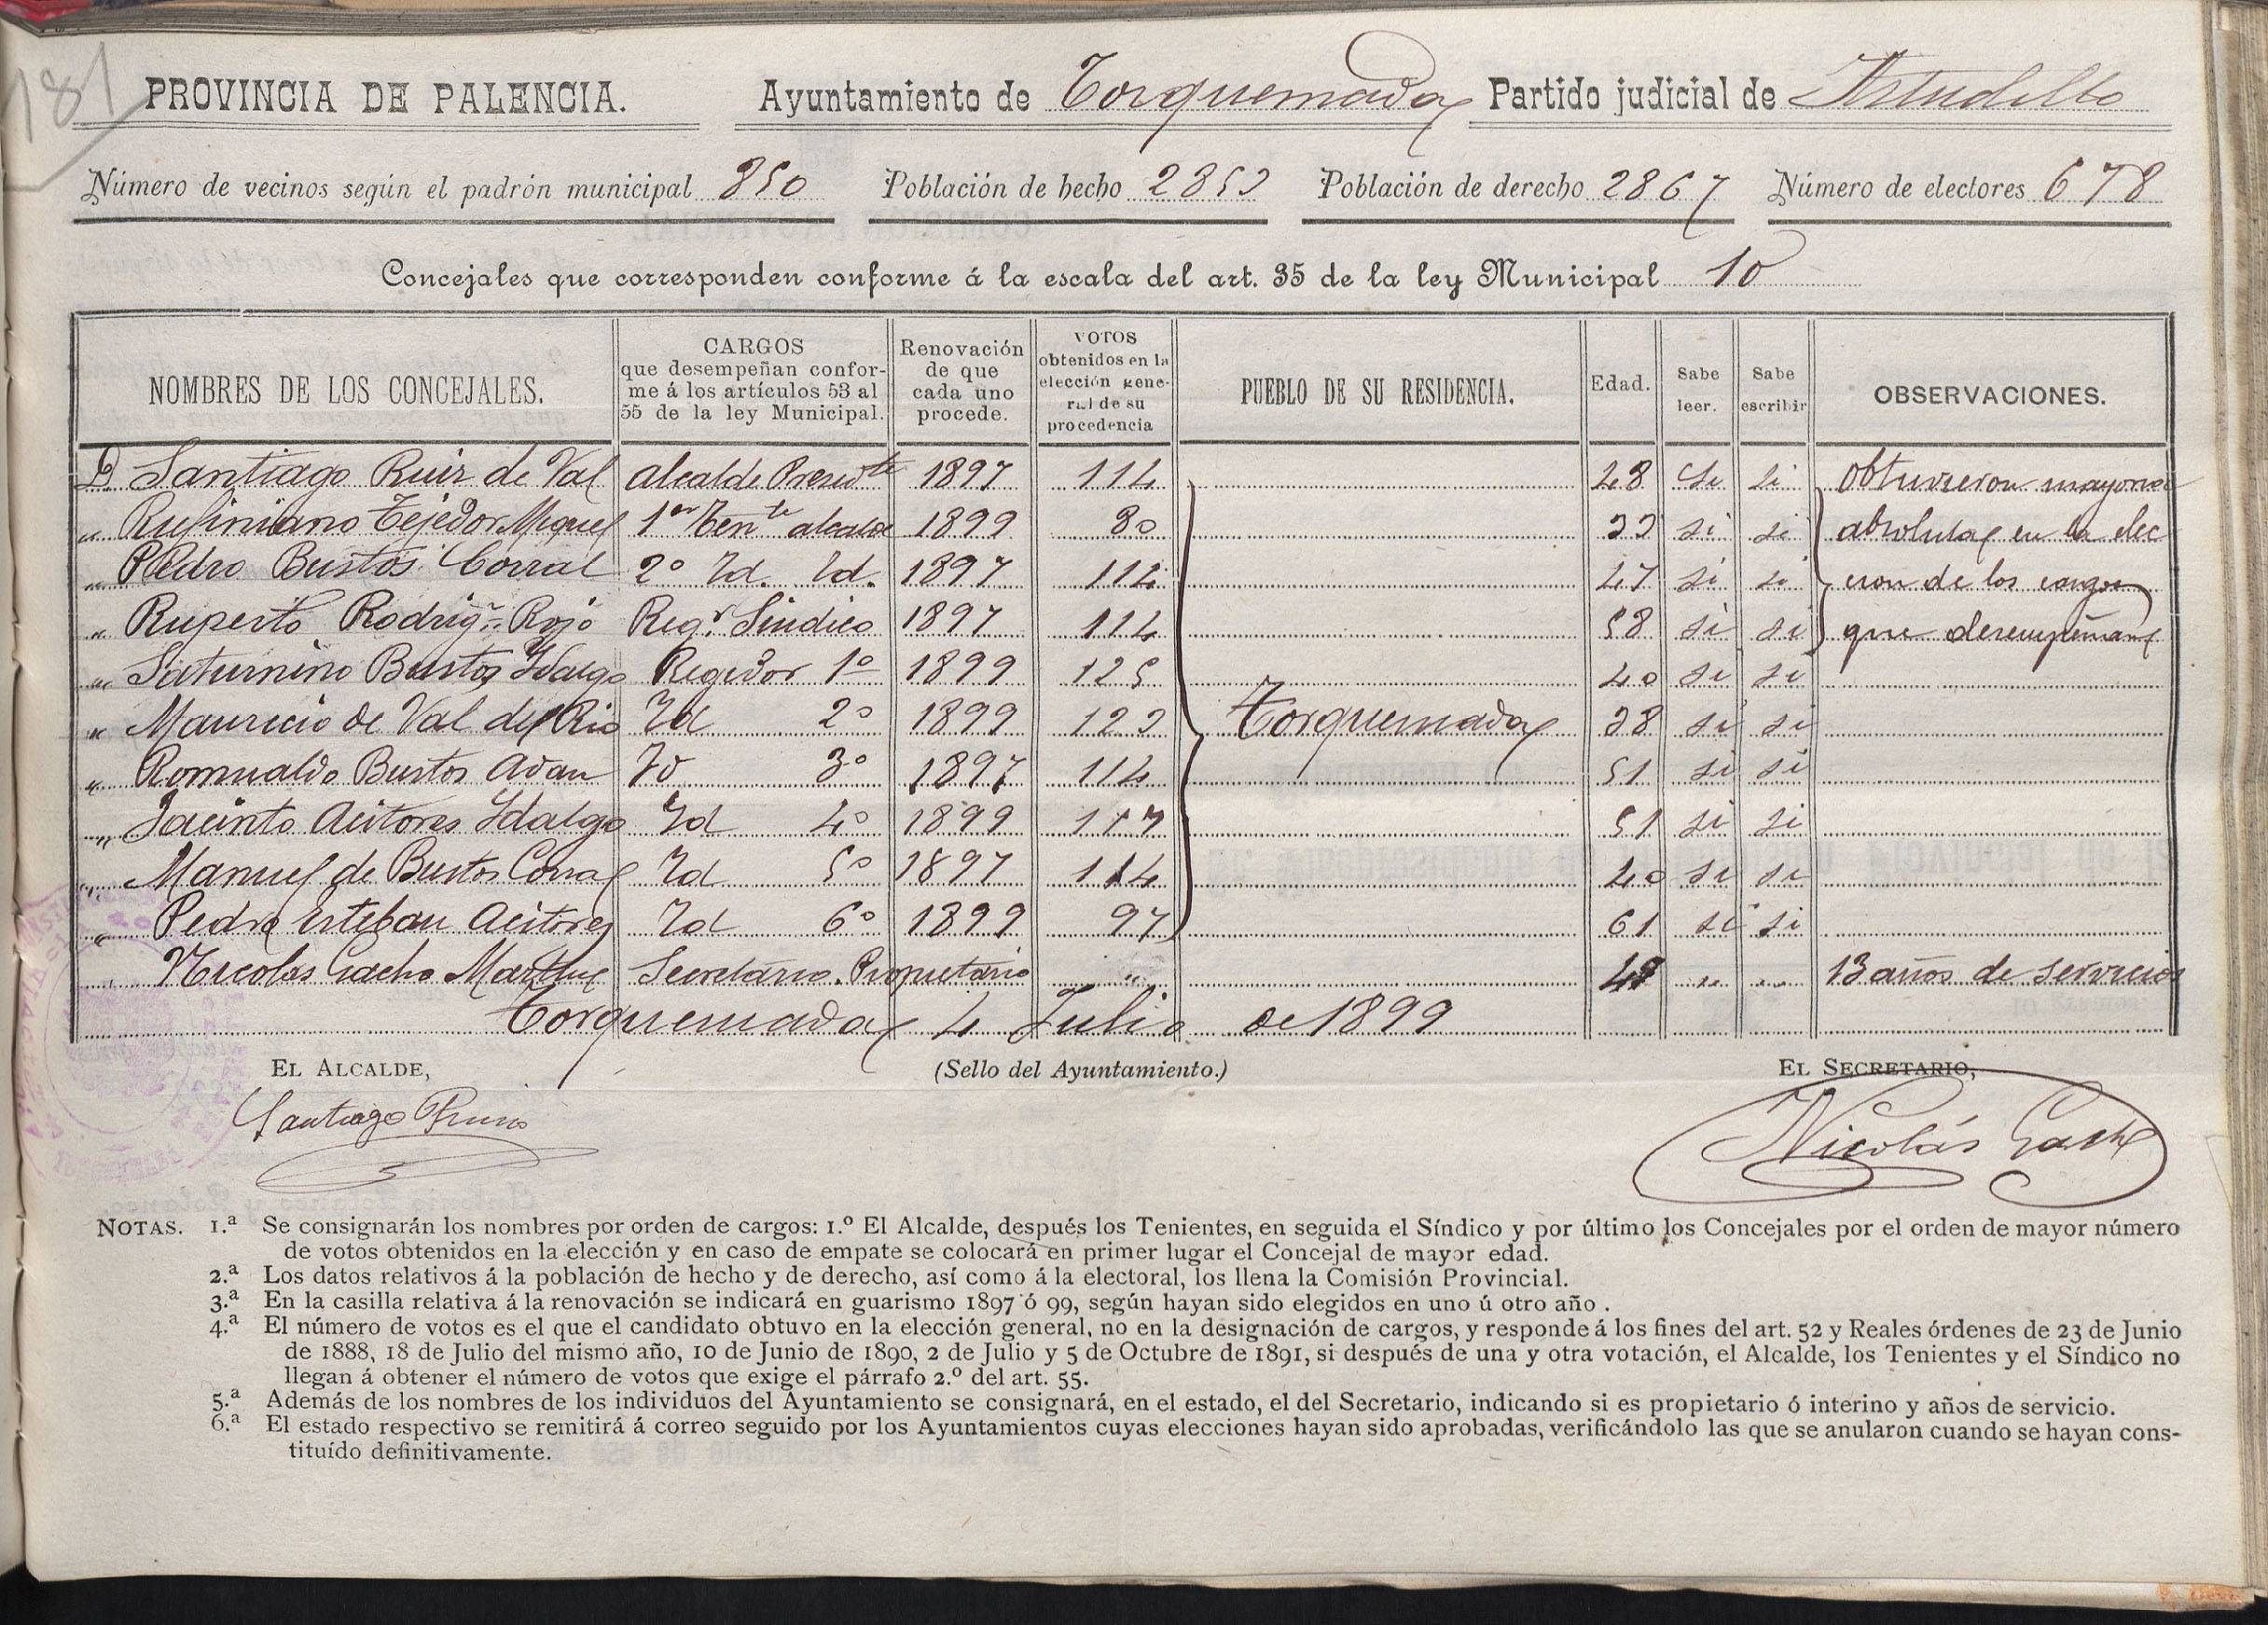 181
PROVINCIA DE PALENCIA. Ayuntamiento de Torquemada Partido judicial de Astudillo
Número de vecinos según el padrón municipal 850 Población de hecho 2853 Población de derecho 2867 Número de electores 678
Concejales que corresponden conforme á la escala del art. 35 de la ley Municipal 10
NOMBRES DE LOS CONCEJALES. CARGOS que desempeñan conforme á los artículos 53 al 55 de la ley Municipal. Renovación de que cada uno procede. VOTOS obtenidos en la elección general de su procedencia PUEBLO DE SU RESIDENCIA. Edad. Sabe leer. Sabe escribir OBSERVACIONES.
D. Santiago Ruiz de Val alcalde Presid.te 1897 114 48 si si obtuvieron mayoria
" Rufiniano Tejedor Miguel 1er Ten.te alcalde 1899 80 33 si si absoluta en la elec
" Pedro Bustos Corral 2º Id. Id. 1897 114 47 si si cion de los cargos
" Ruperto Rodrig.z Rojo Reg.r Sindico 1897 114 58 si si que desempeñan
" Saturnino Bustos Idalgo Regidor 1º 1899 125 40 si si
" Mauricio de Val del Rio Id 2º 1899 123 Torquemada 38 si si
" Romualdo Bustos Adan Id 3º 1897 114 51 si si
" Jacinto Acitores Idalgo Id 4º 1899 117 51 si si
" Manuel de Bustos Corral Id 5º 1897 114 40 si si
" Pedro Esteban Acitores Id 6º 1899 97 61 si si
" Nicolas Gacho Martinez Secretario Propietario " " " 13 años de servicios
Torquemada 4 Julio de 1899
EL ALCALDE, (Sello del Ayuntamiento.) EL SECRETARIO,
Santiago Ruiz
Nicolás Gacho
NOTAS. 1.ª Se consignarán los nombres por orden de cargos: 1.º El Alcalde, después los Tenientes, en seguida el Síndico y por último los Concejales por el orden de mayor número
de votos obtenidos en la elección y en caso de empate se colocará en primer lugar el Concejal de mayor edad.
2.ª Los datos relativos á la población de hecho y de derecho, así como á la electoral, los llena la Comisión Provincial.
3.ª En la casilla relativa á la renovación se indicará en guarismo 1897 ó 99, según hayan sido elegidos en uno ú otro año .
4.ª El número de votos es el que el candidato obtuvo en la elección general, no en la designación de cargos, y responde á los fines del art. 52 y Reales órdenes de 23 de Junio
de 1888, 18 de Julio del mismo año, 10 de Junio de 1890, 2 de Julio y 5 de Octubre de 1891, si después de una y otra votación, el Alcalde, los Tenientes y el Síndico no
llegan á obtener el número de votos que exige el párrafo 2.º del art. 55.
5.ª Además de los nombres de los individuos del Ayuntamiento se consignará, en el estado, el del Secretario, indicando si es propietario ó interino y años de servicio.
6.ª El estado respectivo se remitirá á correo seguido por los Ayuntamientos cuyas elecciones hayan sido aprobadas, verificándolo las que se anularon cuando se hayan cons-
tituído definitivamente.